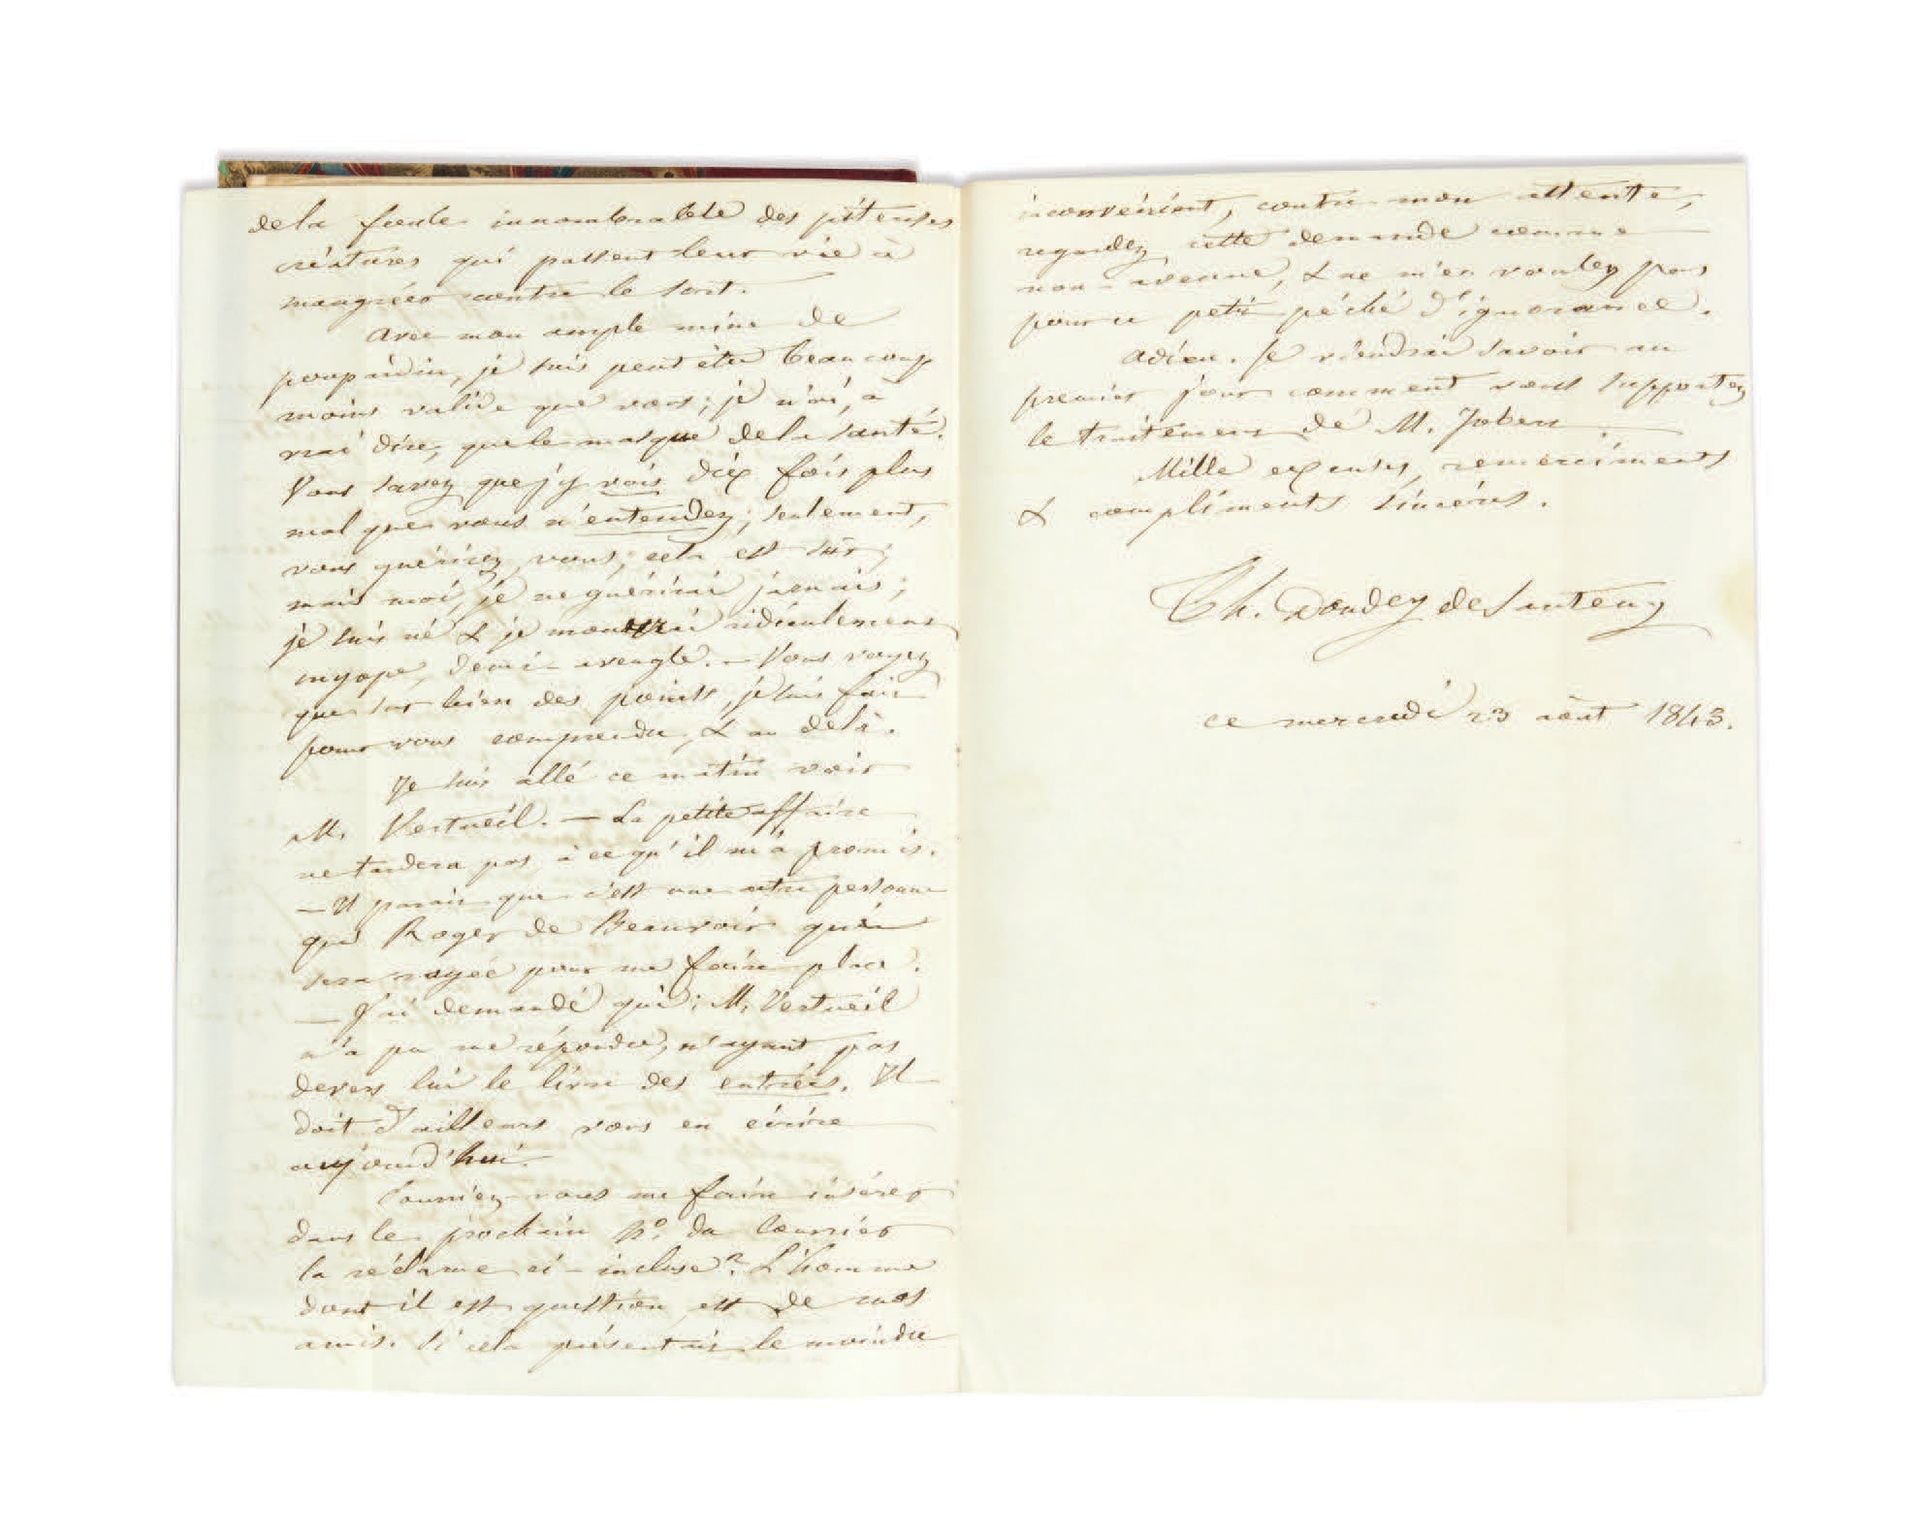 de la foule innombrable des piteuses
créatures qui passent leur vie à
maugréer contre le sort.
Avec mon ample mine de
poupardin, je suis peut être beaucoup
moins valide que vous ; je n'ai, à
vrai dire, que le masque de la santé.
Vous savez que j'y vois dix fois plus
mal que vous n'entendez ; seulement,
vous guérirez, vous ; cela est sûr ;
mais moi, je ne guérirai jamais ;
je suis né & je mourrai ridiculement
myope, demi-aveugle. – Vous voyez
que sur bien des points, je suis fait
pour vous comprendre, & au delà.
Je suis allé ce matin voir
M. Verteuil. – La petite affaire
ne tardera pas, à ce qu'il m'a promis.
– Il parait que c'est une autre personne
que Roger de Beauvoir qui
sera rayée pour me faire place.
– J'ai demandé qui ; M. Verteuil
n'a pu me répondre, n'ayant pas
devers lui le livre des entrées. Il
doit d'ailleurs vous en écrire
aujourd'hui. –
Pourriez-vous me faire insérer
dans le prochain No. du Courrier
la réclame ci-incluse ? L'homme
dont il est question, est de mes
amis. Si cela présentait le moindre
inconvénient, contre mon attente,
regardez cette demande comme
non-avenue, & ne m'en voulez pas
pour ce petit péché d'ignorance.
Adieu. Je viendrai savoir au
premier jour comment vous supportez
le traitement de M. Jobert.
Mille excuses, remercîments
& compliments sincères.
Th. Dondey de Santeny
ce mercredi 23 août 1843.